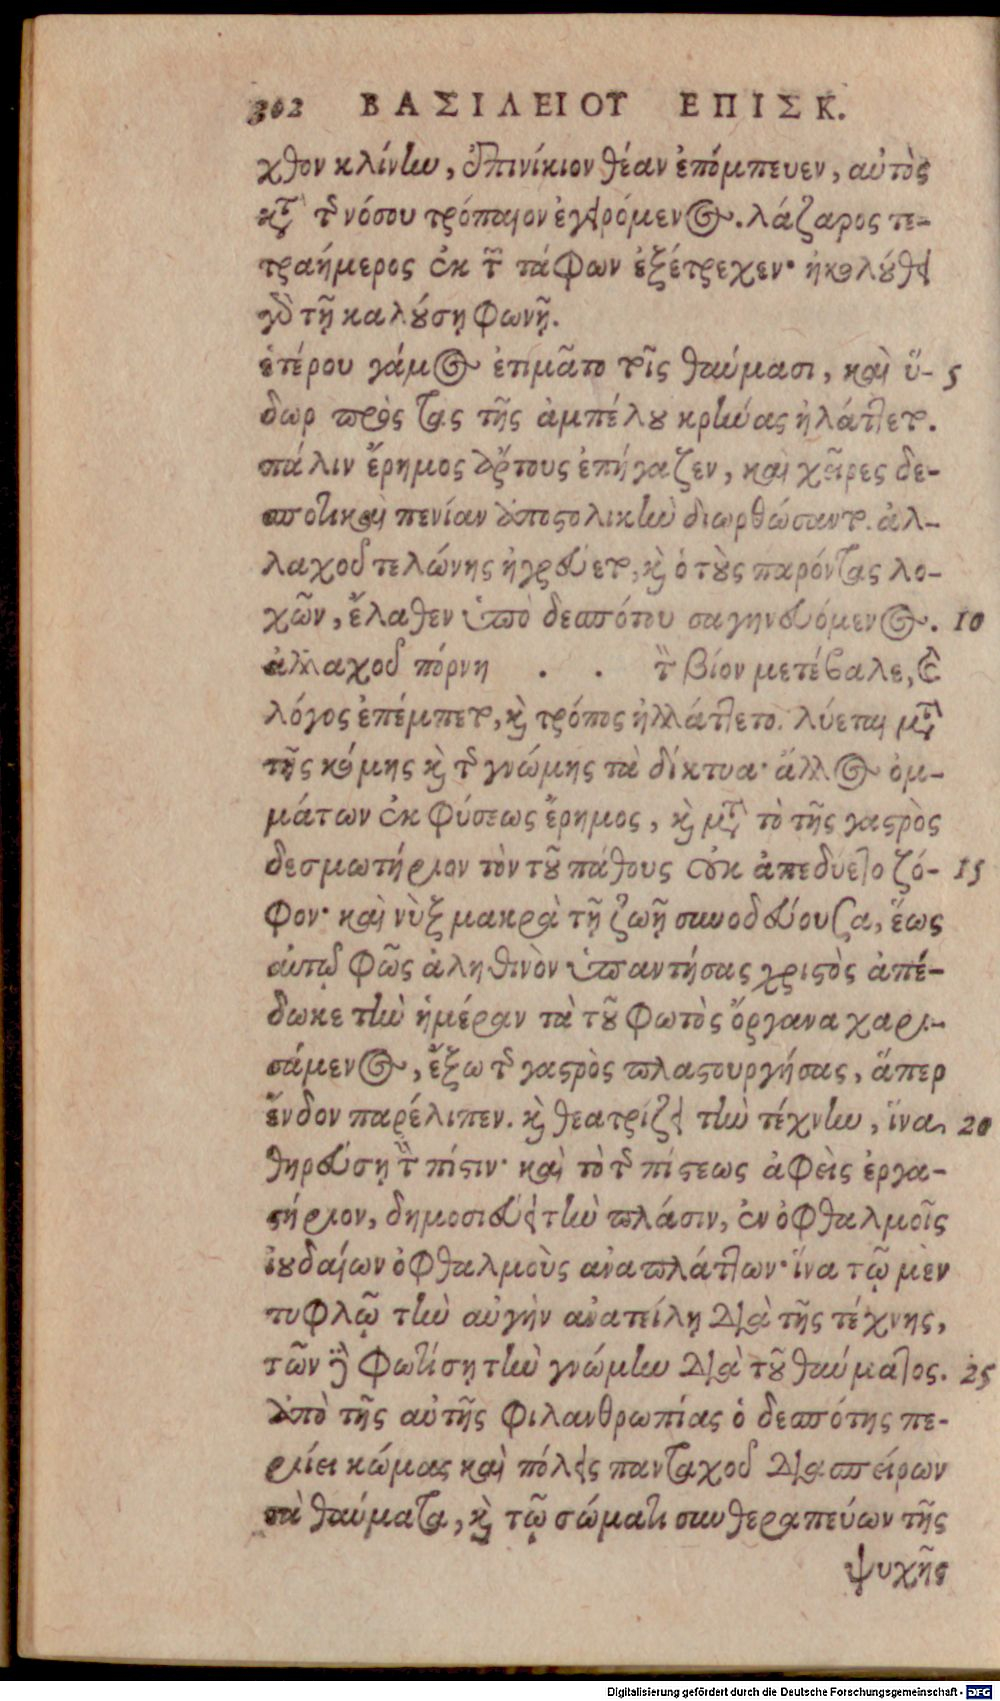 302 ΒΑΣΙΛΕΙΟΥ ΕΠΙΣΚ.
χθον κλίνην, ἐπινίκιον θέαν ἐπόμπευεν, αὐτὸς
κατὰ τῆς νόσου τρόπαιον ἐγειρόμενος. λάζαρος τε-
τραήμερος ἐκ τῶν τάφων ἐξέτρεχεν· ἠκολούθει
γὰρ τῇ καλούσῃ φωνῇ.
ἑτέρου γάμος ἐτιμᾶτο τοῖς θαύμασι, καὶ ὕ- 5
δωρ πρὸς τὰς τῆς ἀμπέλου κρήνας ἠλάττετο.
πάλιν ἔρημος ἄρτους ἐπήγαζεν, καὶ χεῖρες δε-
σποτικαὶ πενίαν ἀποστολικὴν διωρθώσαντο. ἀλ-
λαχοῦ τελώνης ἠγρεύετο, καὶ ὁ τοὺς παρόντας λο-
χῶν, ἔλαθεν ὑπὸ δεσπότου σαγηνευόμενος. 10
ἀλλαχοῦ πόρνη . . τὸν βίον μετέβαλε, καὶ
λόγος ἐπέμπετο, καὶ τρόπος ἠλλάττετο. λύεται μετὰ
τῆς κόμης καὶ τῆς γνώμης τὰ δίκτυα· ἄλλος ὀμ-
μάτων ἐκ φύσεως ἔρημος, καὶ μετὰ τὸ τῆς γαστρὸς
δεσμωτήριον τὸν τοῦ πάθους οὐκ ἀπεδύετο ζό- 15
φον· καὶ νὺξ μακρὰ τῇ ζωῇ συνοδεύουσα, ἕως
αὐτῷ φῶς ἀληθινὸν ὑπαντήσας χριστὸς ἀπέ-
δωκε τὴν ἡμέραν τὰ τοῦ φωτὸς ὄργανα χαρι-
σάμενος, ἔξω τῆς γαστρὸς πλαστουργήσας, ἅπερ
ἔνδον παρέλιπεν. καὶ θεατρίζει τὴν τέχνην, ἵνα 20
θηρεύσῃ τὴν πίστιν· καὶ τὸ τῆς πίστεως ἀφεὶς ἐργα-
στήριον, δημοσιεύει τὴν πλάσιν, ἐν ὀφθαλμοῖς
ἰουδαίων ὀφθαλμοὺς ἀναπλάττων· ἵνα τῷ μὲν
τυφλῷ τὴν αὐγὴν ἀνατείλῃ διὰ τῆς τέχνης,
τῶν δὲ φωτίσῃ τὴν γνώμην διὰ τοῦ θαύματος. 25
ἀπὸ τῆς αὐτῆς φιλανθρωπίας ὁ δεσπότης πε-
ριίει κώμας καὶ πόλεις πανταχοῦ διασπείρων
τὰ θαύματα, καὶ τῷ σώματι συνθεραπεύων τῆς
ψυχῆς
Digitalisierung gefördert durch die Deutsche Forschungsgemeinschaft - DFG